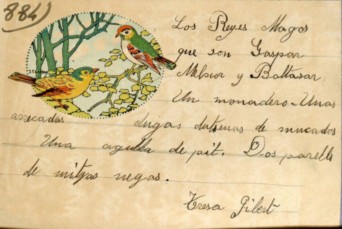 884)
Los Reyes Magos
que son Gaspar
Melsior y Baltasar
Un monadero. Unas
arecados dugas datsenas de mucados
Una agulla de pit. Dos parells
de mitjas negas.
Tresa Gibert